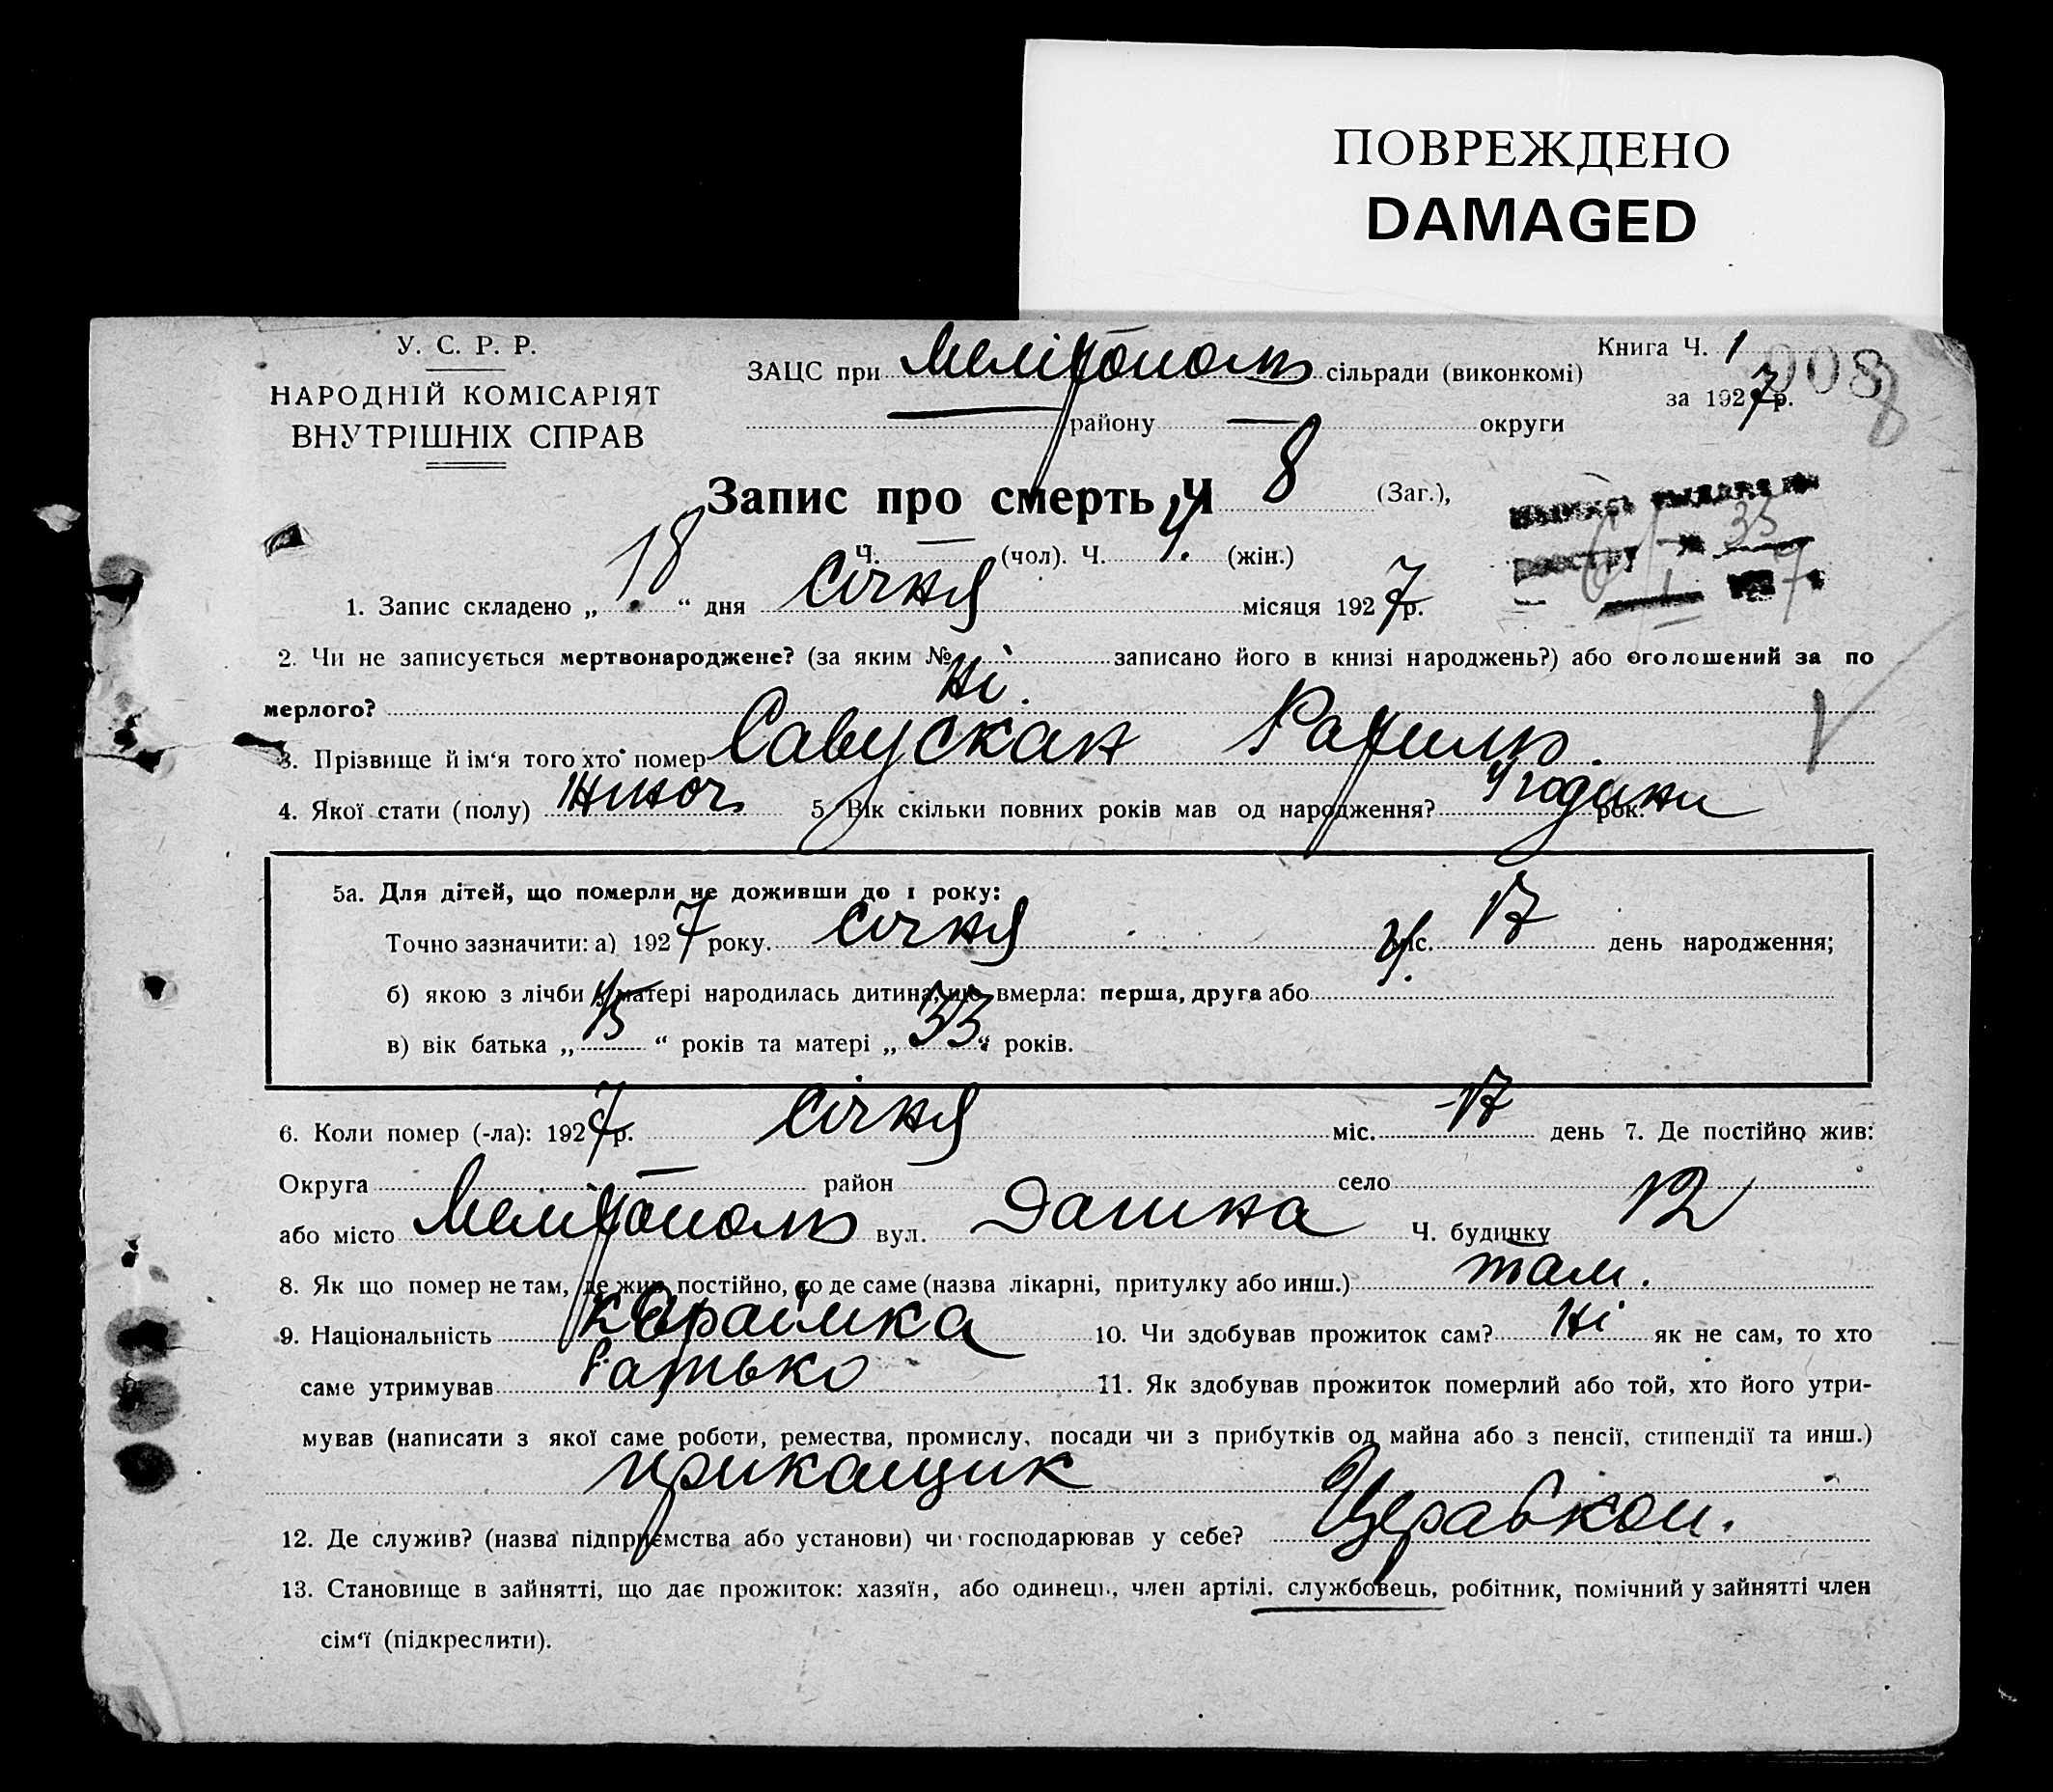 ПОВРЕЖДЕНО
DAMAGED
У. С. Р. Р.
НАРОДНІЙ КОМІСАРІЯТ
ВНУТРІШНІХ СПРАВ
ЗАЦС при Мелітополь сільради (виконкомі)
району — округи
Книга Ч. 1
за 1927 р.
008
8
Запис про смерть Ч 8 (Заг.),
Ч. — (чол). Ч. 4. (жін.)
35
1. Запис складено „ 18 “ дня Січня місяця 1927 р.
2. Чи не записується мертвонароджене? (за яким № записано його в книзі народжень?) або оголошений за по
мерлого? Ні.
3. Прізвище й ім‘я того хто помер Савускан Рахиль.
4. Якої стати (полу) жіноч. 5. Вік скільки повних років мав од народження? 4 години рок.
5а. Для дітей, що померли не доживши до 1 року:
Точно зазначити: а) 1927 року. Січня міс. 17 день народження;
б) якою з лічби у матері народилась дитина, що вмерла: перша, друга або 4.
в) вік батька „ 45 “ років та матері „ 33 “ років.
6. Коли помер (-ла): 1927 р. Січня міс. 17 день 7. Де постійно жив:
Округа — район село
або місто Мелітополь вул. Ч. будинку 12
8. Як що помер не там, де жив постійно, то де саме (назва лікарні, притулку або инш.) там.
9. Національність Караїмка 10. Чи здобував прожиток сам? Ні як не сам, то хто
саме утримував батько 11. Як здобував прожиток померлий або той, хто його утри-
мував (написати з якої саме роботи, ремества, промислу, посади чи з прибутків од майна або з пенсії, стипендії та инш.)
прикащик
12. Де служив? (назва підприємства або установи) чи господарював у себе? Церабкоп.
13. Становище в зайнятті, що дає прожиток: хазяїн, або одинець, член артілі, службовець, робітник, помічний у зайнятті член
сім‘ї (підкреслити).